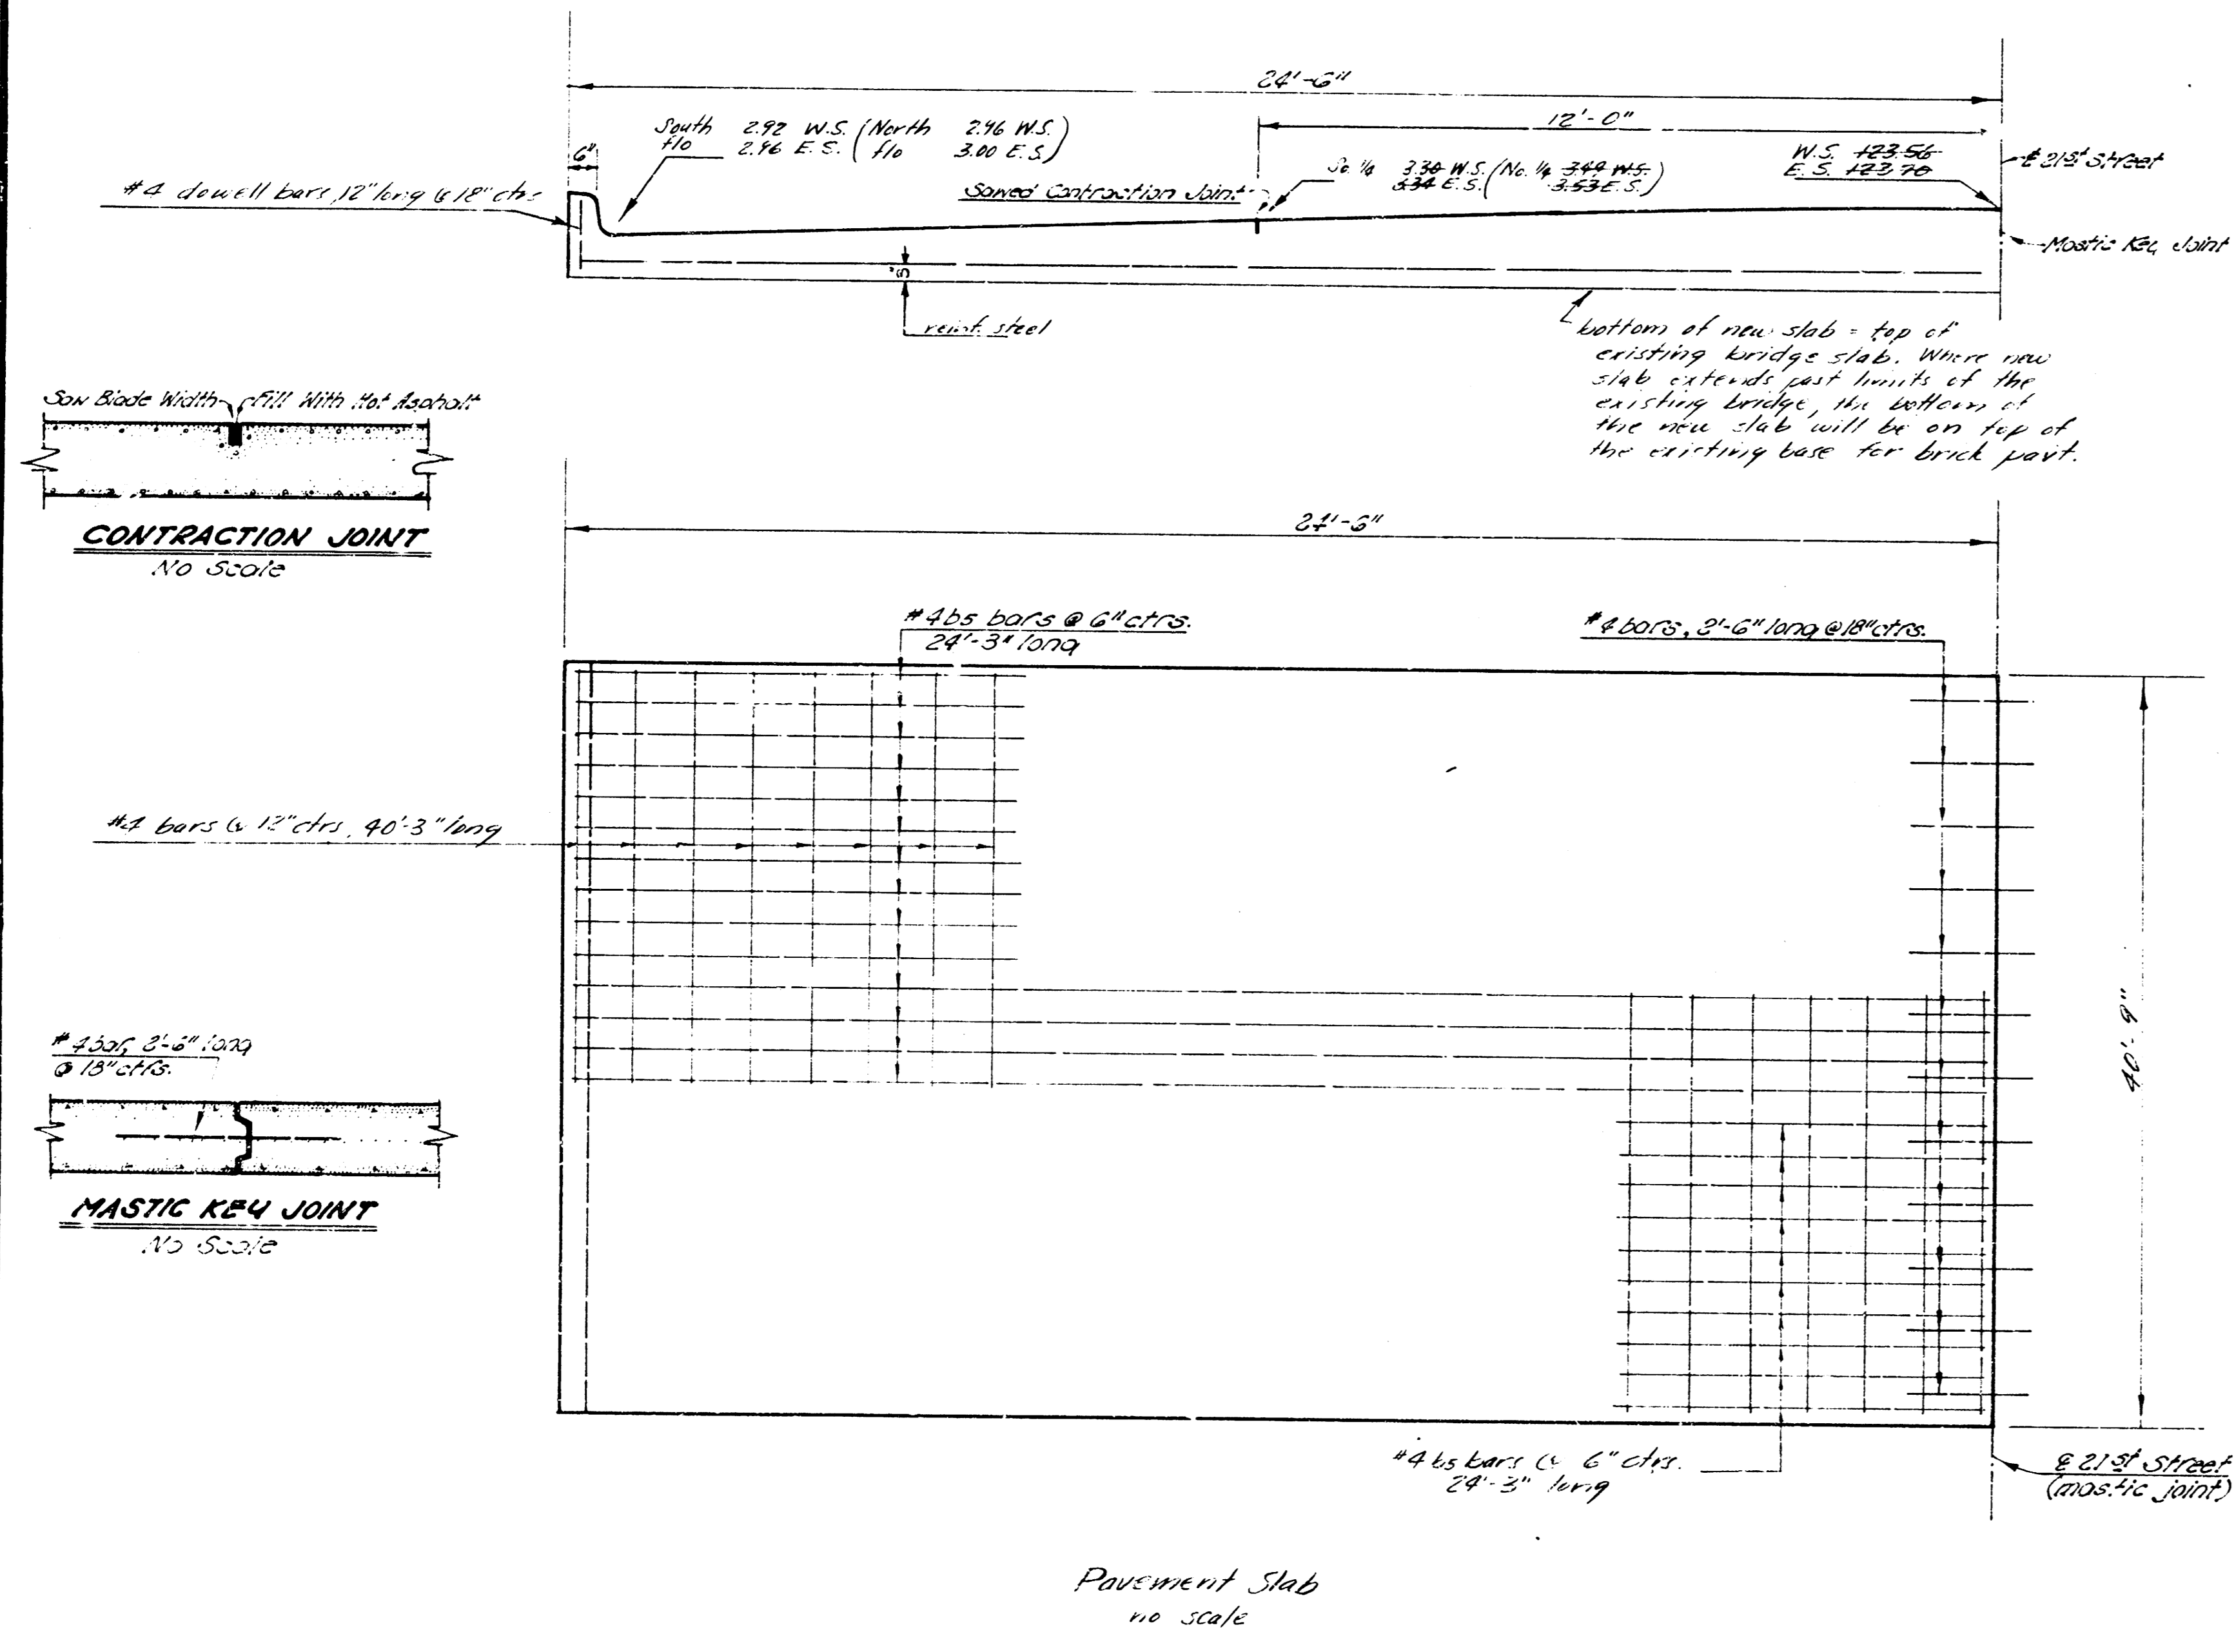 24'-6"
12'-0"
South 2.92 W.S. (North 2.96 W.S.)
flo 2.96 E.S. ( flo 3.00 E.S)
6"
So. 1/4 3.30 W.S. (No. 1/4 3.49 W.S.)
3.34 E.S. ( 3.53 E.S.)
W.S. 123.56
E.S. 123.70
℄ 21st Street
#4 dowell bars, 12" long @ 18" ctrs
Sawed Contraction Joint
Mastic Key Joint
reinf. steel
bottom of new slab = top of
existing bridge slab. Where new
slab extends past limits of the
existing bridge, the bottom of
the new slab will be on top of
the existing base for brick pavt.
Saw Blade Width
Fill With Hot Asphalt
CONTRACTION JOINT
No Scale
24'-6"
#4 b5 bars @ 6" ctrs.
24'-3" long
#4 bars, 2'-6" long @ 18" ctrs.
#4 bars @ 12" ctrs, 40'-3" long
40'-9"
#4 bar, 2'-6" long
@ 18" ctrs.
MASTIC KEY JOINT
No Scale
#4 b5 bars @ 6" ctrs.
24'-3" long
℄ 21st Street
(mastic joint)
Pavement Slab
no scale